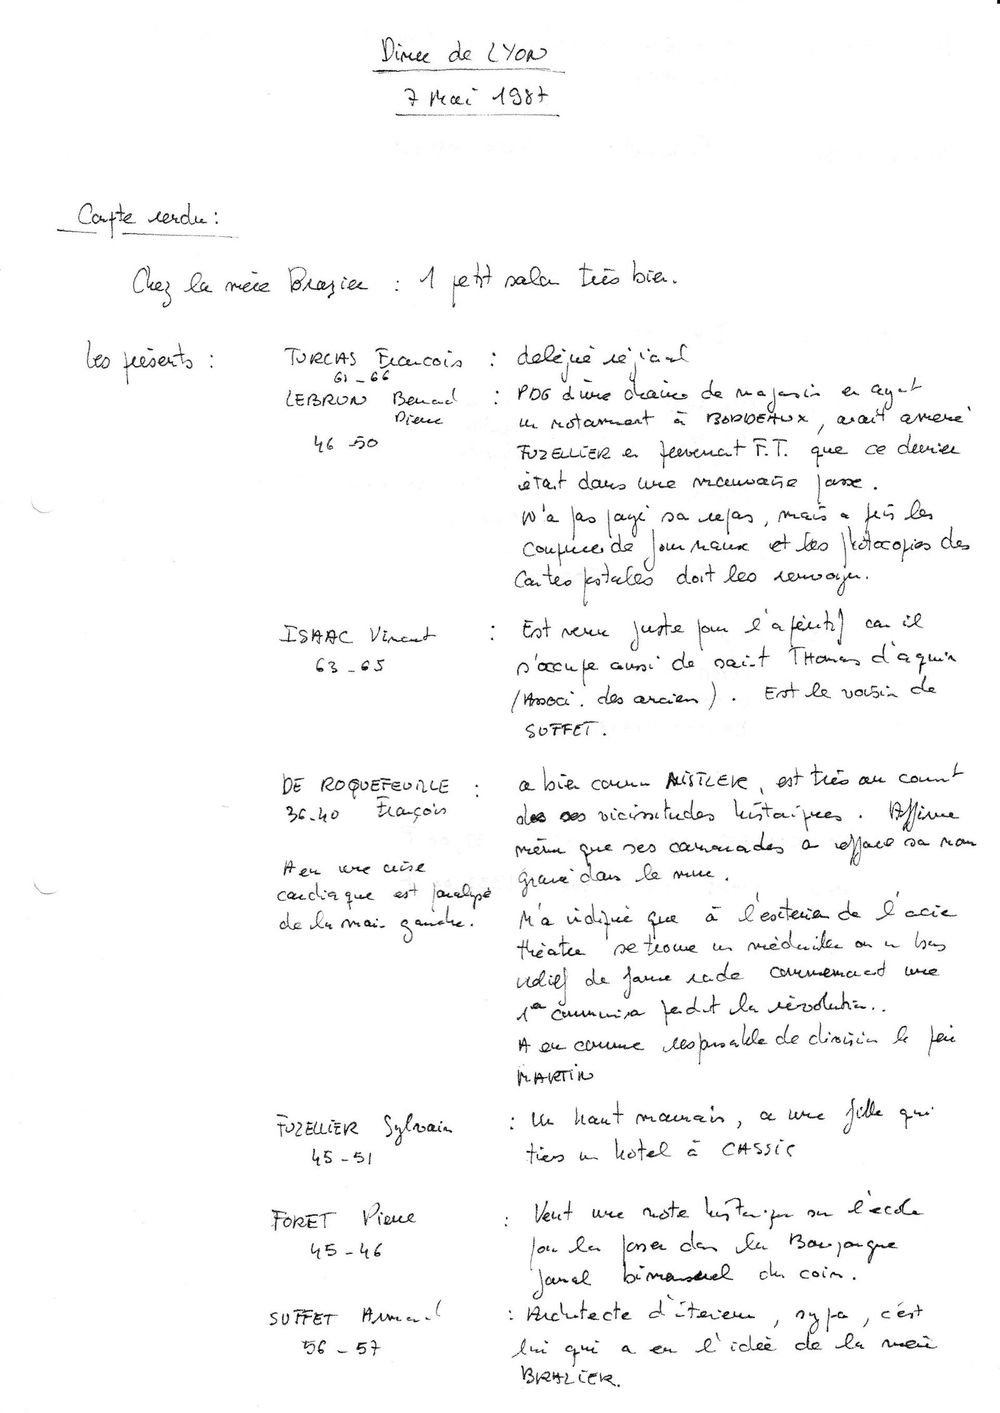 Diner de LYON
7 Mai 1987
Compte rendu :
Chez la mère Brazier : 1 petit salon très bien.
Les présents : TURCAS Francois : délégué régional
61 - 66
LEBRUN Bernard : PDG d'une chaine de magasin en ayant
Pierre un notamment à BORDEAUX, avait amené
46 - 50 FUZELLIER en prevenant F.T. que ce dernier
était dans une mauvaise passe.
N'a pas payé sa repas, mais a pris les
coupures de journaux et les photocopies des
Cartes postales doit les renvoyer.
ISAAC Vincent : Est venu juste pour l'apéritif car il
63 - 65 s'occupe aussi de saint Thomas d'aquin
(Associ. des anciens). Est le voisin de
SUFFET.
DE ROQUEFEUILLE : a bien connu MISTLER, est très au courant
36-40 François des ses vicissitudes historiques. Affirme
même que ses camarades a effacé sa nom
A eu une crise gravé dans le mur.
cardiaque est paralysé
de la main gauche. M'a indiqué que à l'exterieur de l'acien
théatre se trouve un médaillon ou un bas
relief de forme ronde commemorant une
1ère communion pendant la révolution..
A eu comme responsable de division le père
MARTIN
FUZELLIER Sylvain : Un haut marrais, a une fille qui
45 - 51 tiens un hotel à CASSIS
FORET Pierre : Veut une note historique sur l'école
45 - 46 pour la passer dans la Bourgogne
journal bimensuel du coin.
SUFFET Armand : Architecte d'interieur, sympa, c'est
56 - 57 lui qui a eu l'idée de la mère
BRAZIER.